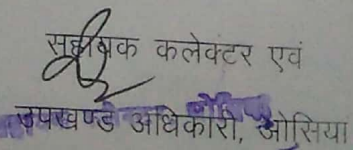 सहायक कलेक्टर एवं
उपखण्ड अधिकारी, ओसिया